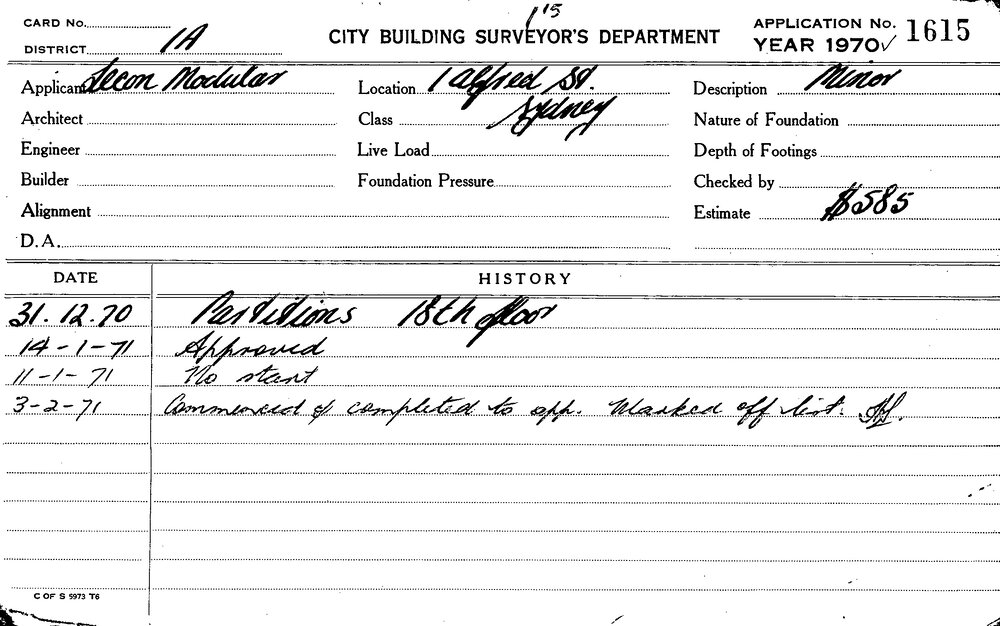 1 15
CARD No.
DISTRICT 1A
CITY BUILDING SURVEYOR'S DEPARTMENT
APPLICATION No. 1615
YEAR 1970 ✓
Applicant Secon Modular
Location 1 Alfred St.
Description Minor
Architect
Class Sydney
Nature of Foundation
Engineer
Live Load
Depth of Footings
Builder
Foundation Pressure
Checked by
Alignment
Estimate $585
D.A.
DATE HISTORY
31.12.70 Partitions 18th floor
14-1-71 Approved
11-1-71 No start
3-2-71 Commenced & completed to app. Marked off list.
C OF S 5973 T6